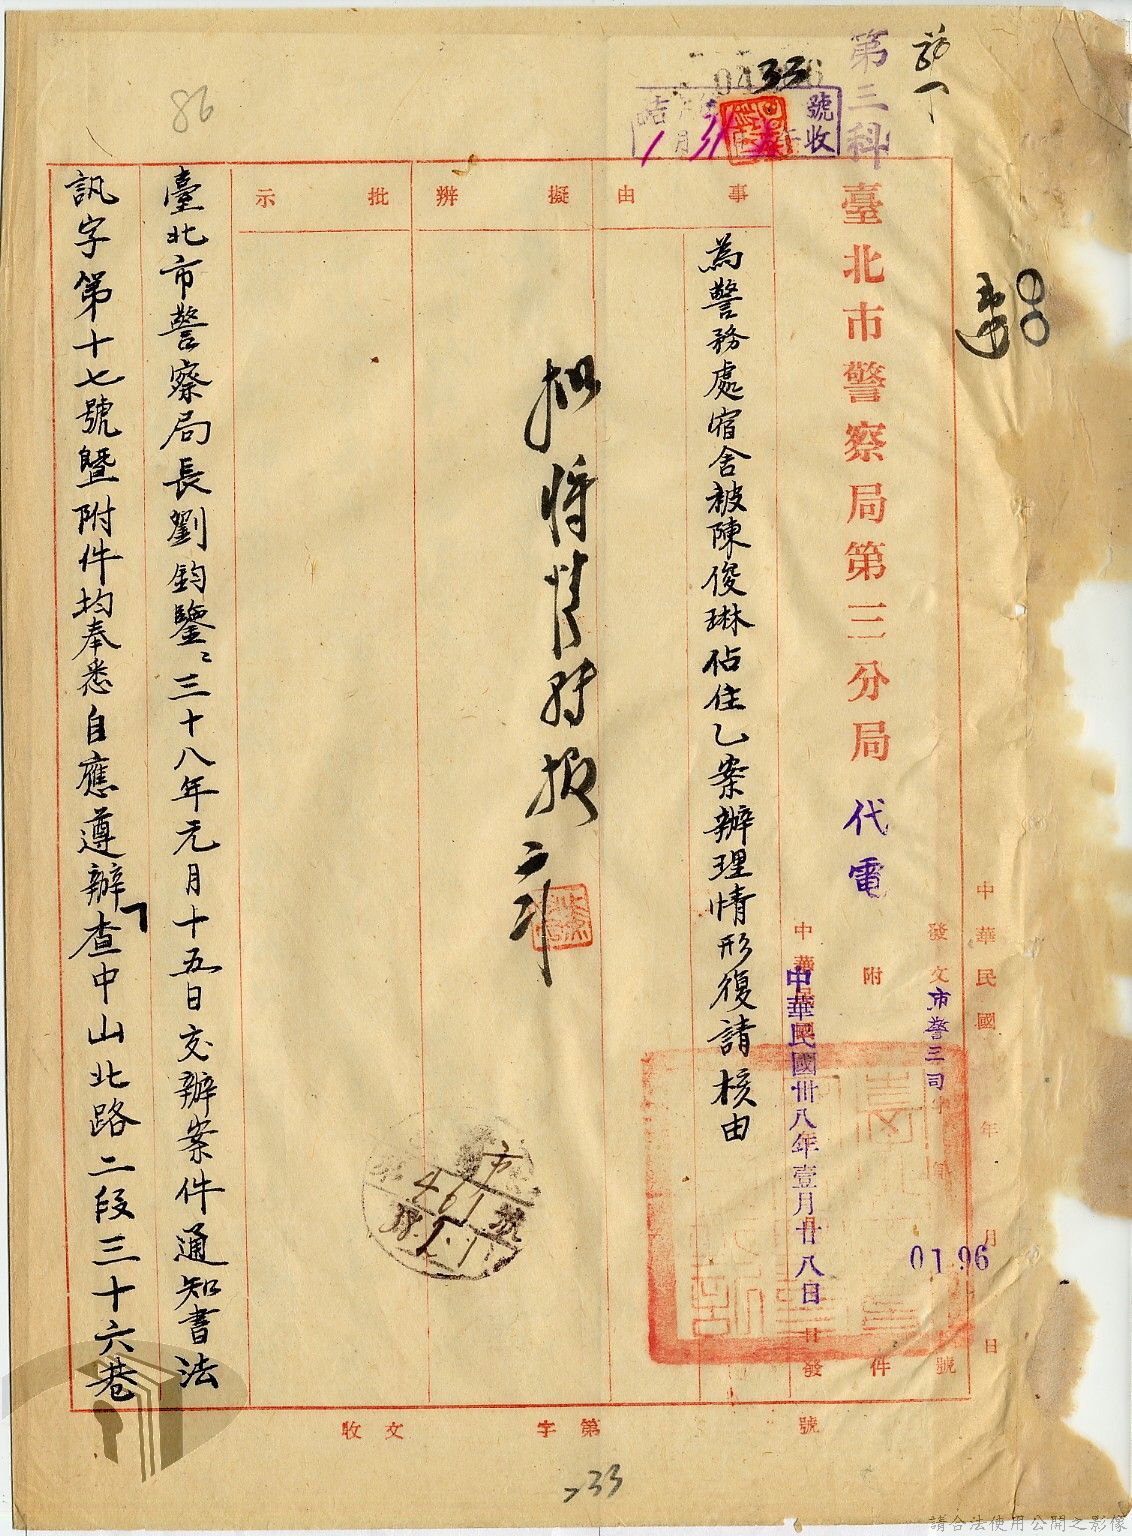 第三科
號收
臺北市警察局第三分局 代電
中華民國 年 月 日
發文 市警三司字第 0196 號
附 件
中華民國卅八年壹月廿八日
事由
擬辦
批示
為警務處宿舍被陳俊琳佔住乙案辦理情形復請核由
拟將情形轉報
臺北市警察局長劉鈞鑒：三十八年元月十五日交辦案件通知書法
訊字第十七號暨附件均奉悉自應遵辦查中山北路二段三十六巷
收文 字第 號
市
461
號
38.
86
233
請合法使用公開之影像